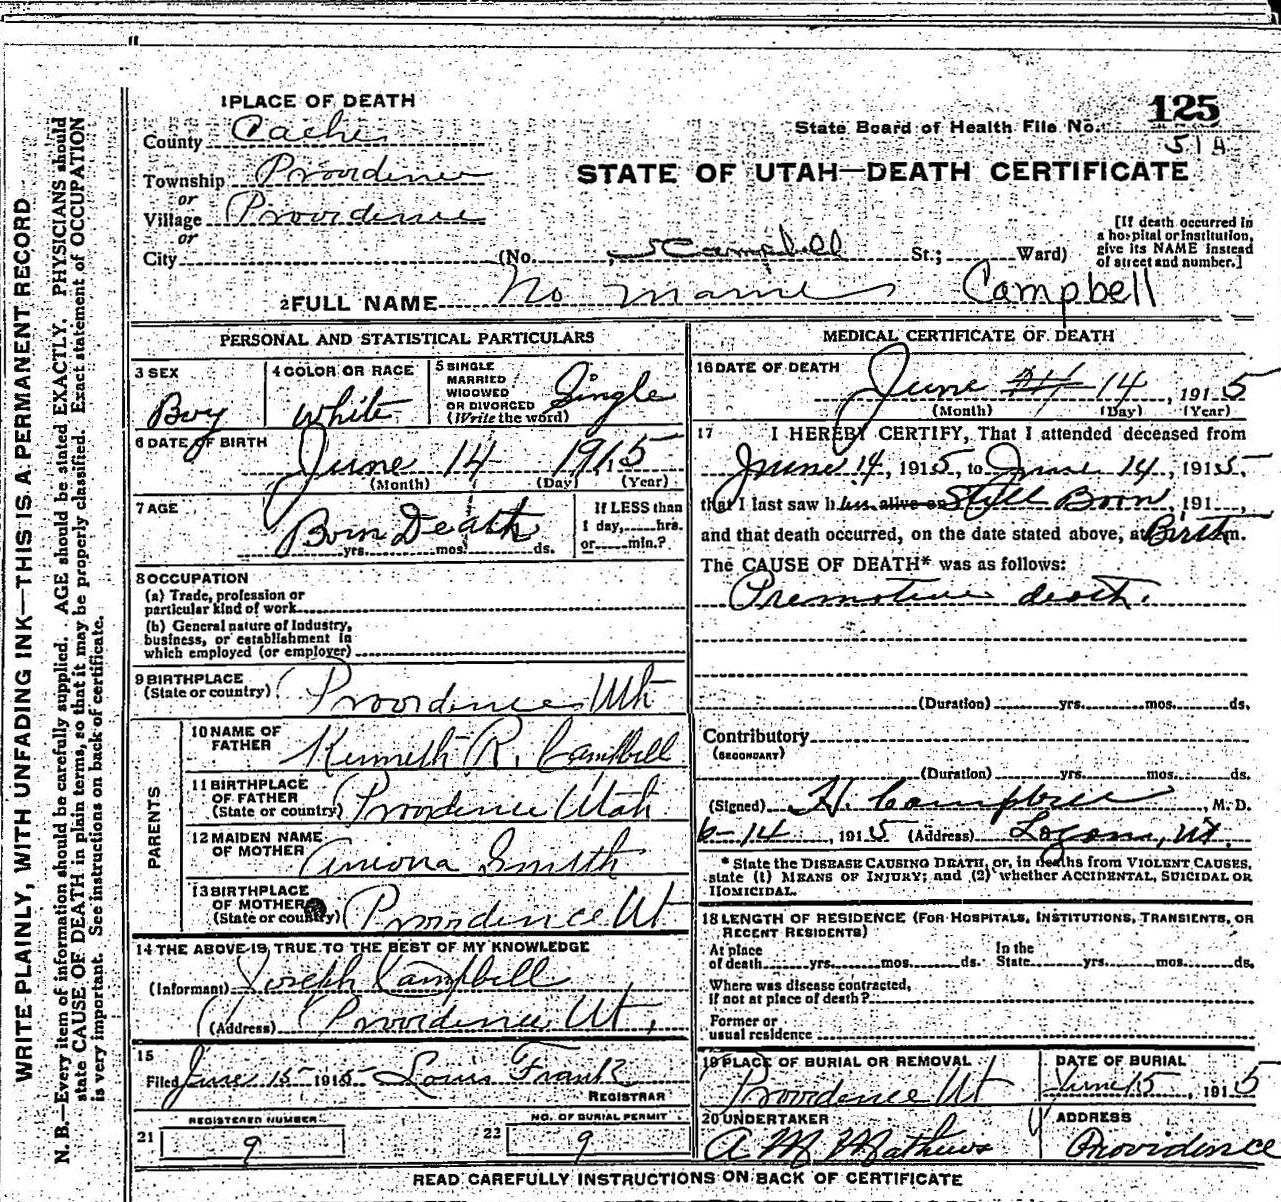 1 PLACE OF DEATH
County Cache
Township Providence
or
Village Providence
or
City (No. Campbell St.; Ward)
State Board of Health File No. 125
514
STATE OF UTAH—DEATH CERTIFICATE
[If death occurred in a hospital or institution, give its NAME instead of street and number.]
2 FULL NAME No name Campbell
WRITE PLAINLY, WITH UNFADING INK—THIS IS A PERMANENT RECORD
N. B.—Every item of information should be carefully supplied. AGE should be stated EXACTLY. PHYSICIANS should
state CAUSE OF DEATH in plain terms, so that it may be properly classified. Exact statement of OCCUPATION
is very important. See instructions on back of certificate.
PERSONAL AND STATISTICAL PARTICULARS
3 SEX
Boy
4 COLOR OR RACE
White
5 SINGLE
MARRIED
WIDOWED
OR DIVORCED
(Write the word)
Single
6 DATE OF BIRTH
June 14 1915
(Month) (Day) (Year)
7 AGE
Born Death
yrs. mos. ds.
If LESS than
1 day, hrs.
or min.?
8 OCCUPATION
(a) Trade, profession or
particular kind of work
(b) General nature of Industry,
business, or establishment in
which employed (or employer)
9 BIRTHPLACE
(State or country) Providence Ut
PARENTS
10 NAME OF
FATHER Kenneth R. Campbell
11 BIRTHPLACE
OF FATHER
(State or country) Providence Utah
12 MAIDEN NAME
OF MOTHER Smith
13 BIRTHPLACE
OF MOTHER
(State or country) Providence Ut
14 THE ABOVE IS TRUE TO THE BEST OF MY KNOWLEDGE
(Informant) Joseph Campbell
(Address) Providence, Ut.
15
Filed June 15 1915 Louis Frank
REGISTRAR
REGISTERED NUMBER
21 9
NO. OF BURIAL PERMIT
22 9
MEDICAL CERTIFICATE OF DEATH
16 DATE OF DEATH
June 14, 1915
(Month) (Day) (Year)
17 I HEREBY CERTIFY, That I attended deceased from
June 14, 1915, to June 14, 1915.
that I last saw h alive on Still Born, 191 ,
and that death occurred, on the date stated above, at Birth m.
The CAUSE OF DEATH* was as follows:
Premotive death.
(Duration) yrs. mos. ds.
Contributory
(SECONDARY)
(Duration) yrs. mos. ds.
(Signed) H. Campbell, M. D.
6-14, 1915 (Address) Logan, Ut.
* State the DISEASE CAUSING DEATH, or, in deaths from VIOLENT CAUSES,
state (1) MEANS OF INJURY; and (2) whether ACCIDENTAL, SUICIDAL OR
HOMICIDAL.
18 LENGTH OF RESIDENCE (FOR HOSPITALS, INSTITUTIONS, TRANSIENTS, OR
RECENT RESIDENTS)
At place
of death yrs. mos. ds.
In the
State yrs. mos. ds.
Where was disease contracted,
if not at place of death?
Former or
usual residence
19 PLACE OF BURIAL OR REMOVAL
Providence Ut
DATE OF BURIAL
June 15, 1915
20 UNDERTAKER
A M Mathews
ADDRESS
Providence
READ CAREFULLY INSTRUCTIONS ON BACK OF CERTIFICATE